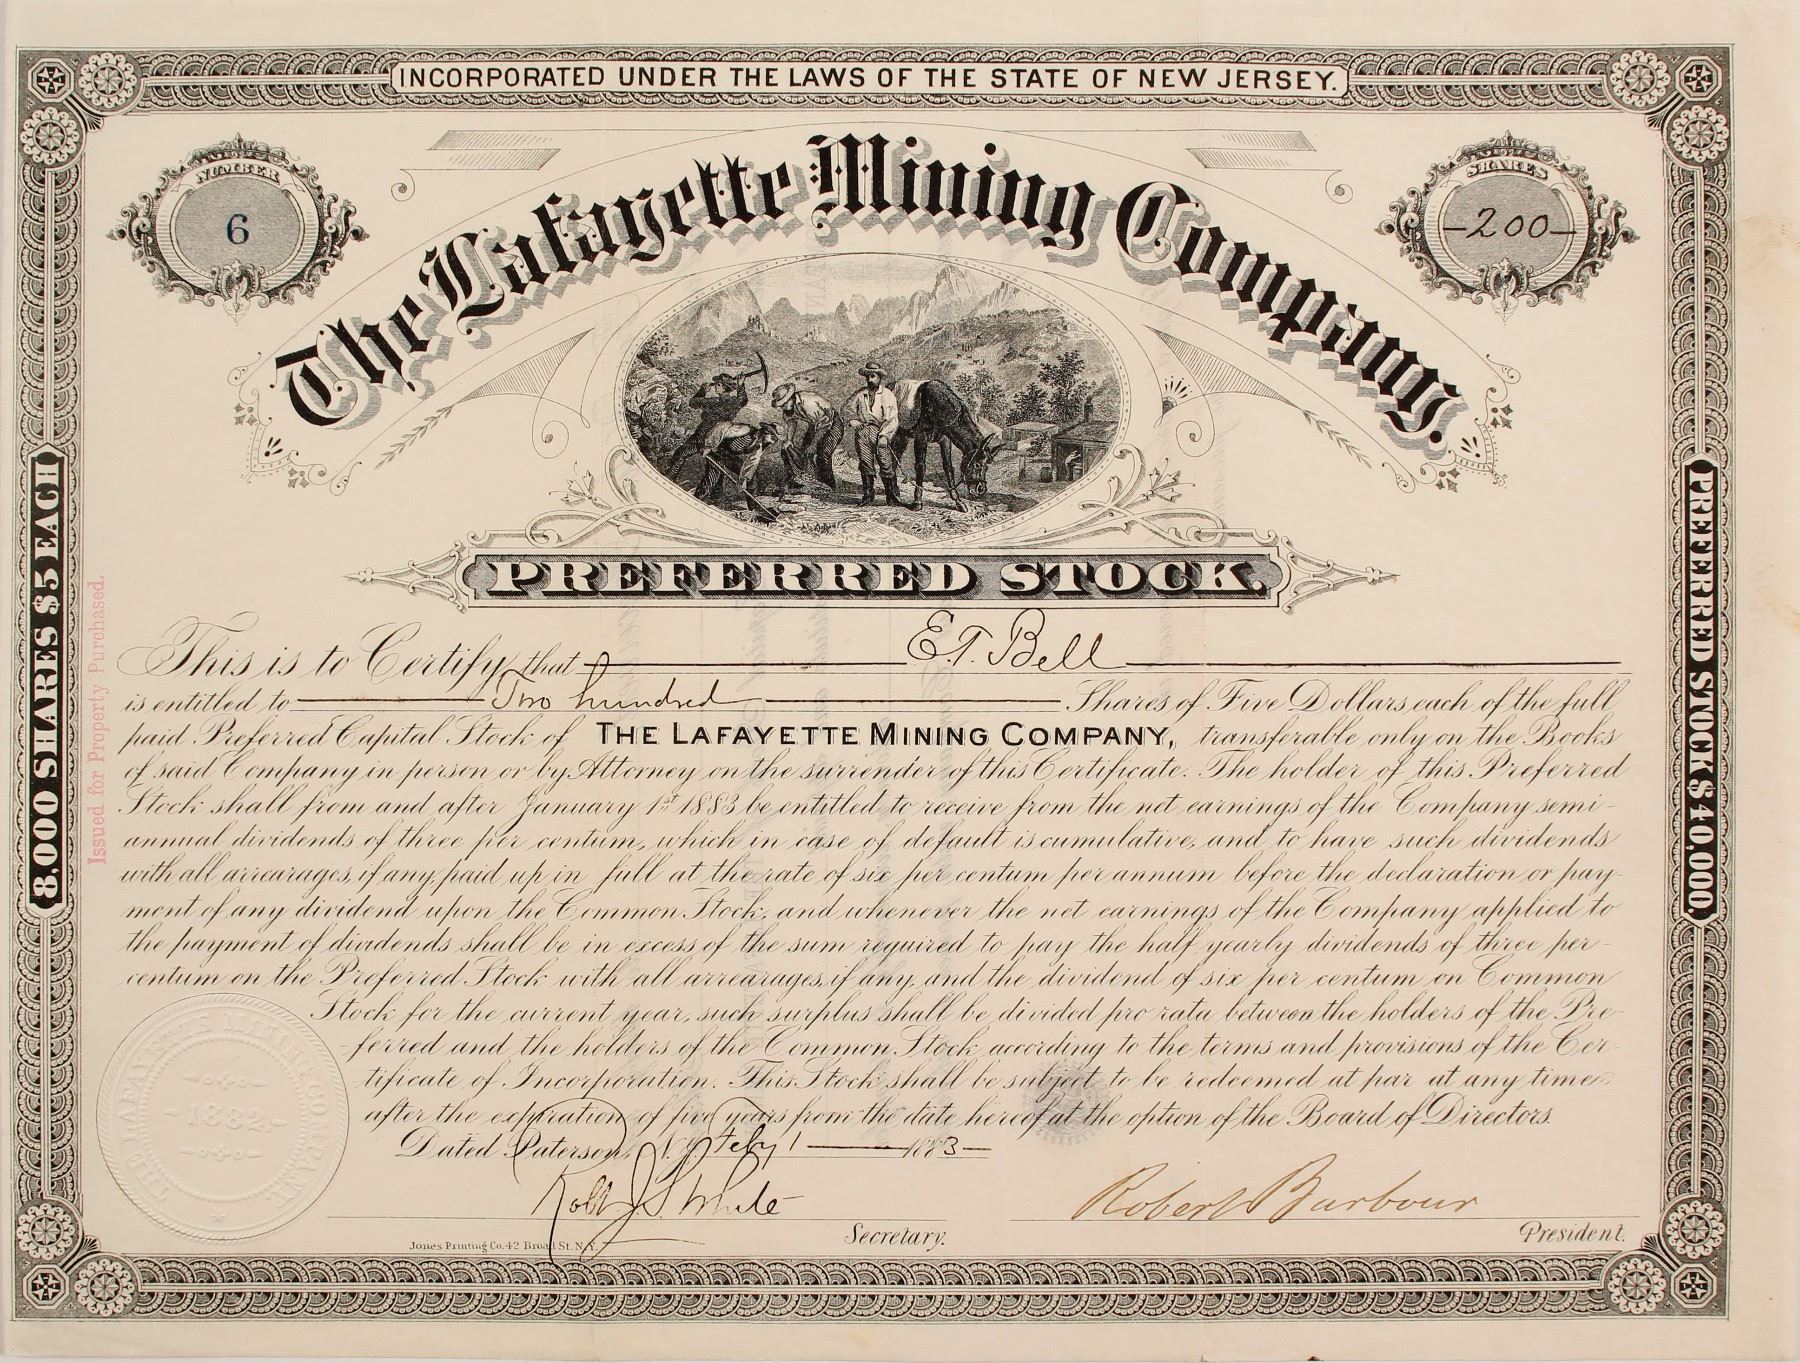 INCORPORATED UNDER THE LAWS OF THE STATE OF NEW JERSEY.
NUMBER
6
SHARES
-200-
The Lafayette Mining Company.
PREFERRED STOCK.
8,000 SHARES $5 EACH
PREFERRED STOCK $40,000.
Issued for Property Purchased.
This is to Certify that E.T. Bell
is entitled to Two hundred Shares of Five Dollars each of the full
paid Preferred Capital Stock of THE LAFAYETTE MINING COMPANY, transferable only on the Books
of said Company in person or by Attorney on the surrender of this Certificate. The holder of this Preferred
Stock shall from and after January 1st 1883 be entitled to receive from the net earnings of the Company semi-
annual dividends of three per centum, which in case of default is cumulative, and to have such dividends
with all arrearages, if any, paid up in full at the rate of six per centum per annum before the declaration or pay-
ment of any dividend upon the Common Stock, and whenever the net earnings of the Company applied to
the payment of dividends shall be in excess of the sum required to pay the half yearly dividends of three per-
centum on the Preferred Stock with all arrearages, if any, and the dividend of six per centum on Common
Stock for the current year, such surplus shall be divided pro rata between the holders of the Pre-
-ferred and the holders of the Common Stock according to the terms and provisions of the Cer-
tificate of Incorporation. This Stock shall be subject to be redeemed at par at any time
after the expiration of five years from the date hereof at the option of the Board of Directors.
Dated Paterson, N.J. Feby 1 1883
THE LAFAYETTE MINING COMPANY
1882
Robt J. S. White
Secretary.
Robert Barbour
President.
Jones Printing Co. 42 Broad St. N.Y.